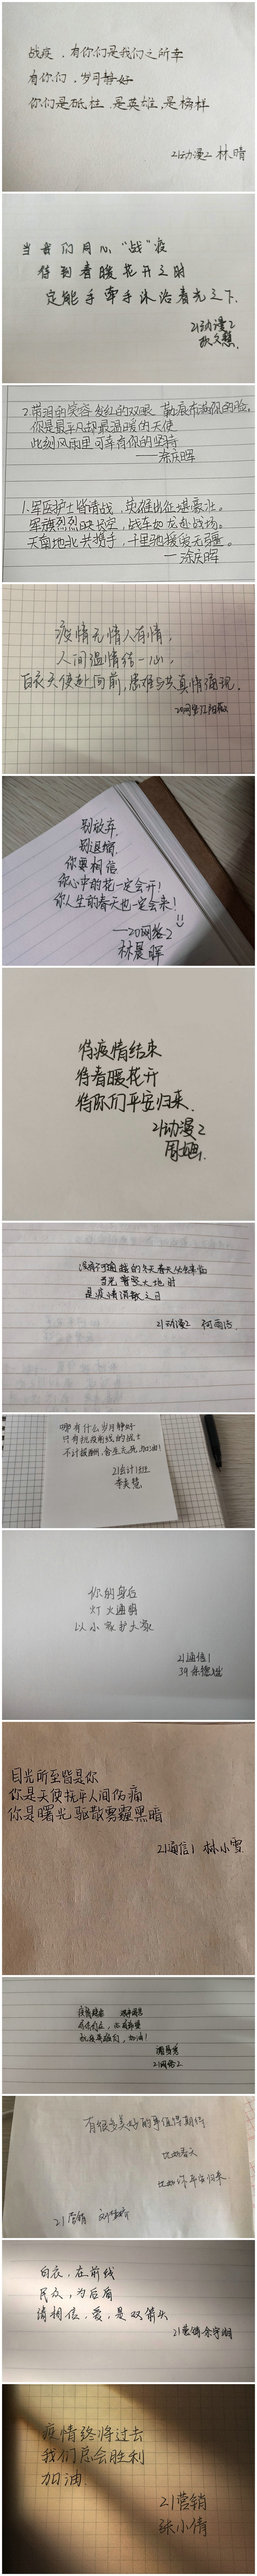 战疫，有你们是我们之所幸
有你们，岁月静好
你们是砥柱，是英雄，是榜样
21动漫2 林晴
当我们用心“战”疫
待到春暖花开之时
定能手牵手沐浴春光之下.
21动漫2
2.带泪的笑容 发红的双眼 勒痕布满你的脸。
你是最平凡却最温暖的天使
此刻风雨里 可幸有你的坚持
——涂庆晖
1.军医护士皆请战，英雄出征堪豪壮。
军旗烈烈映长空，战车如龙赴战场。
天南地北共携手，千里驰援爱无疆。
—涂庆晖
疫情无情人有情，
人间温情结一心，
白衣天使赴向前，患难与共真情涌现.
别放弃.
别退缩.
你要相信
你心中的花一定会开！
你人生的春天也一定会来！
——20网络2
林晨晖
待疫情结束
待春暖花开
待你们平安归来.
21动漫2
没有不可逾越的冬天春天必会来临
当光 大地时
是疫情消散之日
21动漫2 何雨洁
哪有什么岁月静好
只有抗疫前线的战士
不计报酬，舍生忘死，加油！
21会计1班
李奕慧
你的身后
灯火通明
以小家护大家
21通信1
目光所至皆是你
你是天使抚平人间伤痛
你是曙光驱散雾霾黑暗
21通信1 林小雪
21网络2
有很多美好的事值得期待
比如春天
比如你平安归来
21营销
白衣，在前线
民众，为后盾
请相信，爱，是双箭头
21营销
疫情终将过去
我们总会胜利
加油
21营销
张小倩